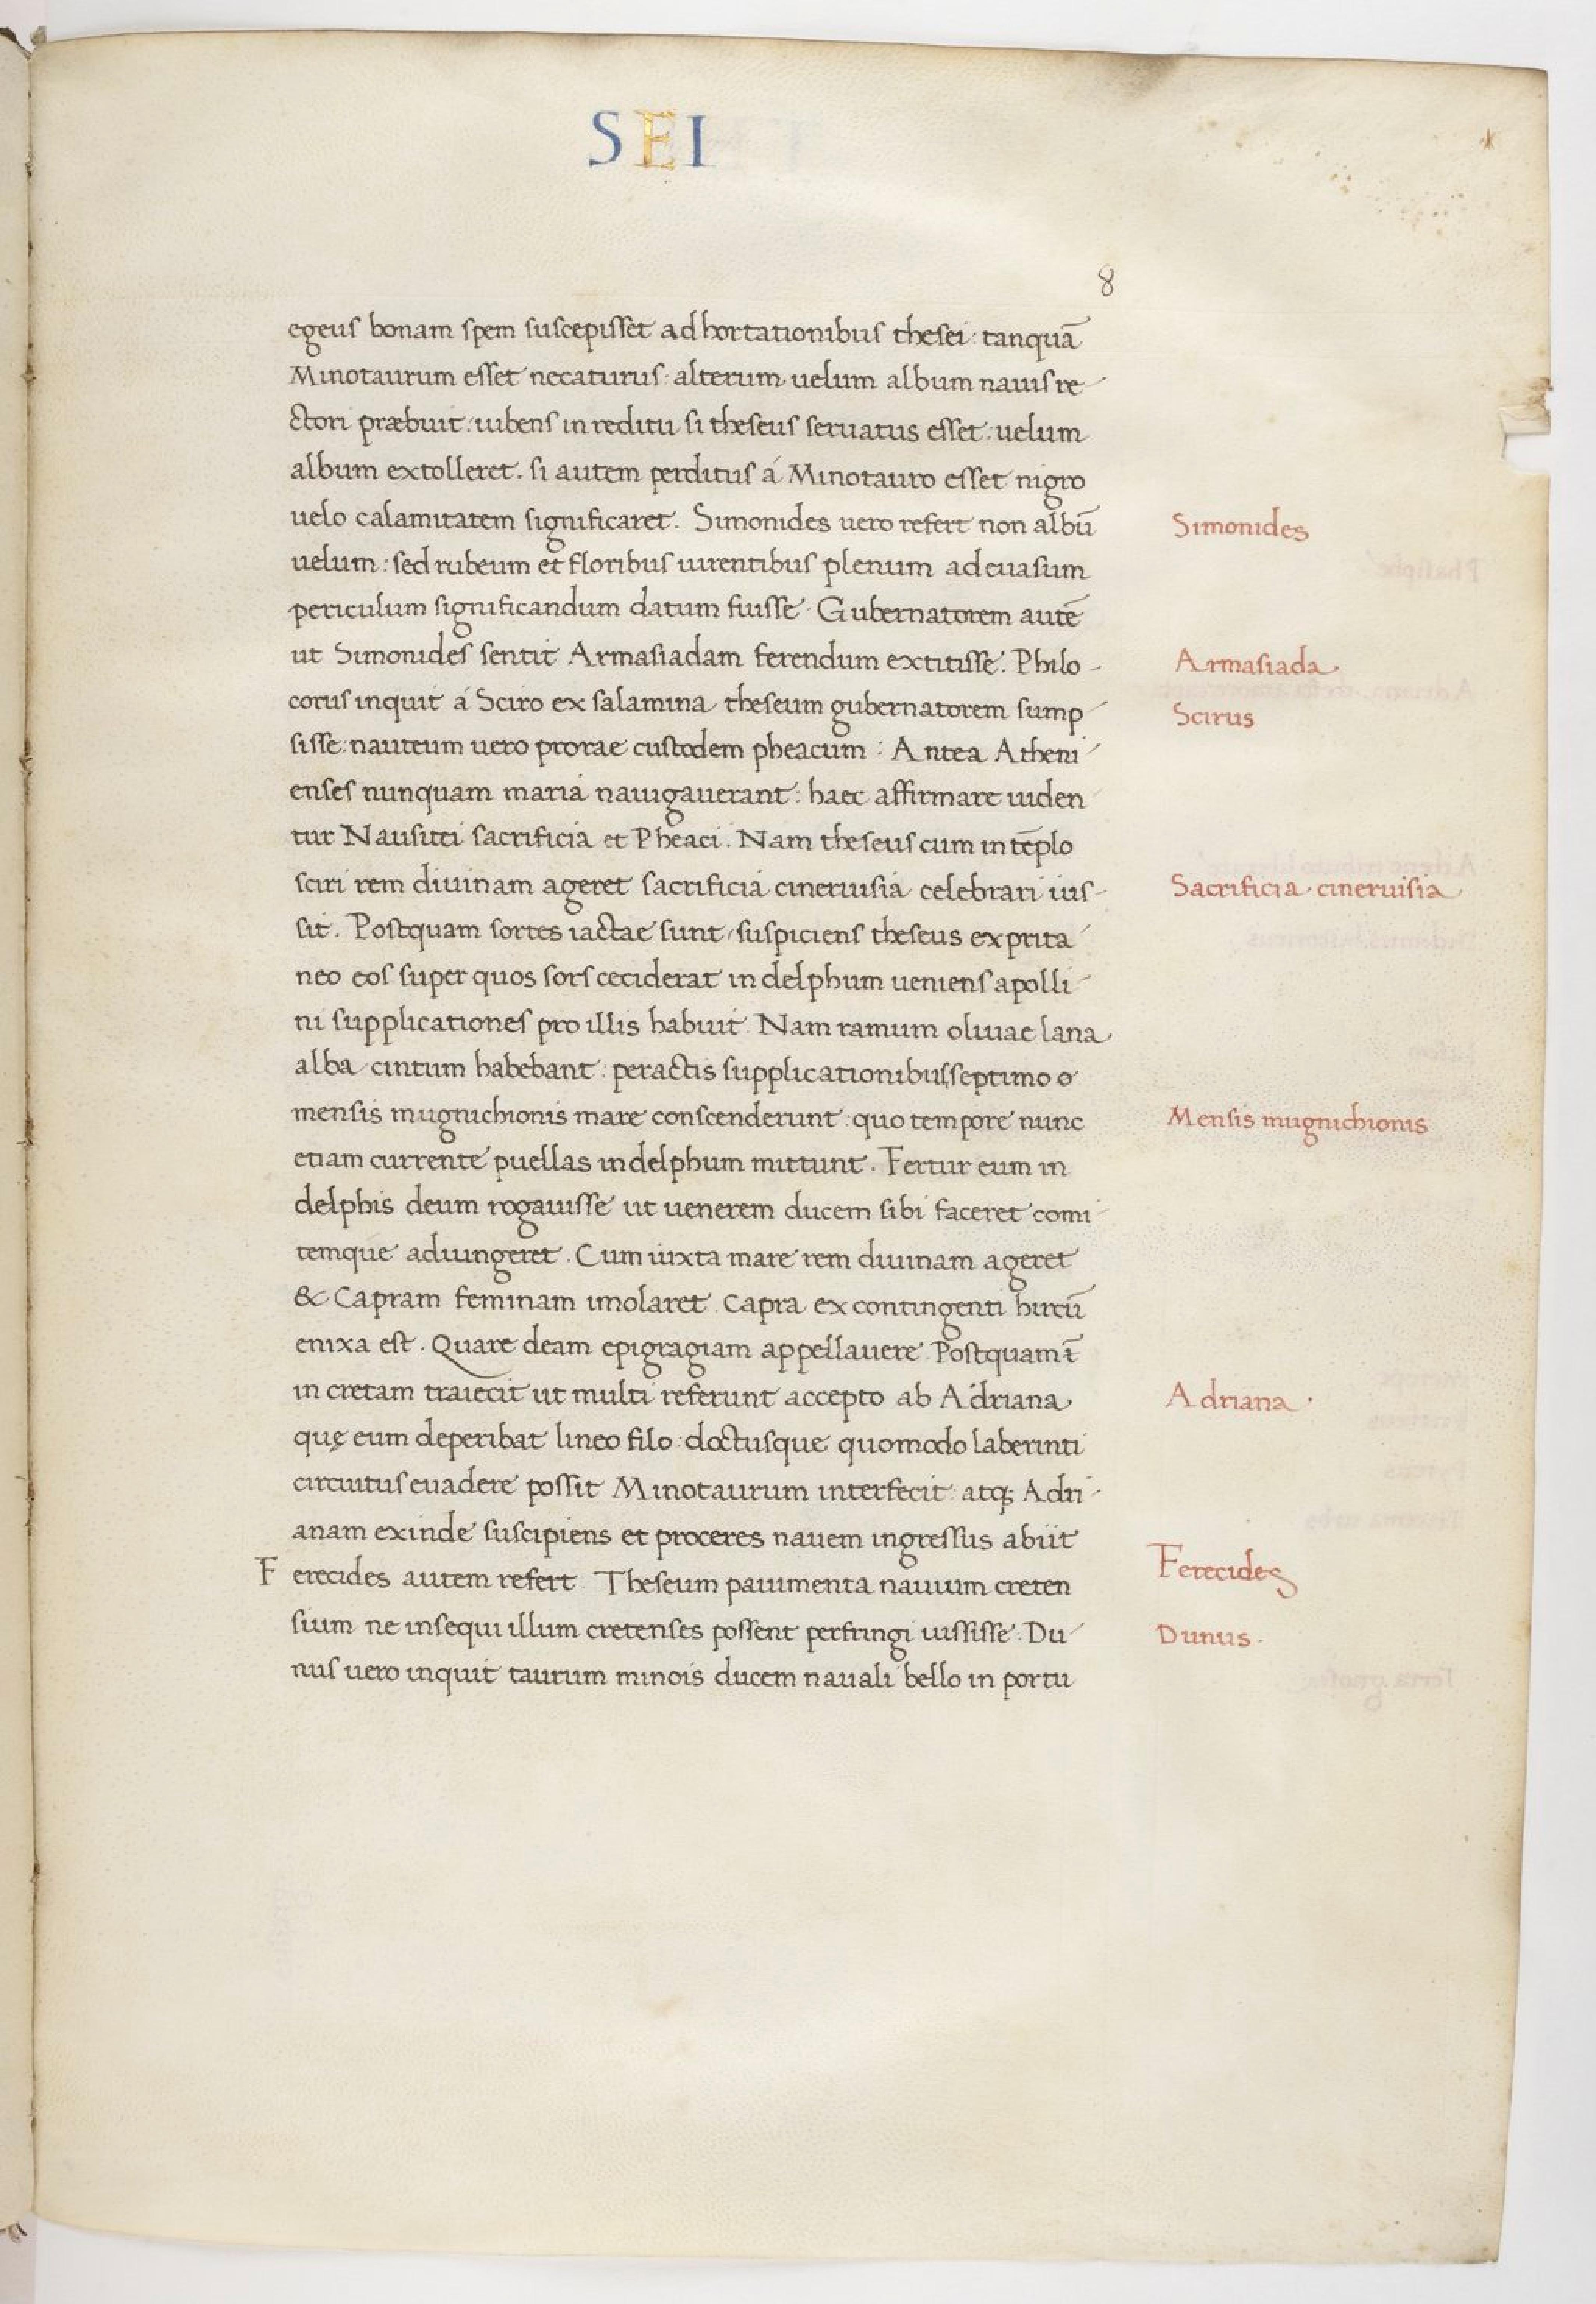 SEI
8
egeus bonam spem suscepisset adhortationibus thesei: tanquā
Minotaurum esset necaturus· alterum uelum album nauis re
ctori præbuit: iubens in reditu si theseus seruatus esset: uelum
album extolleret. si autem perditus á Minotauro esset nigro
uelo calamitatem significaret. Simonides uero refert non albū
Simonides
uelum: sed rubeum et floribus uirentibus plenum ad euasum
periculum significandum datum fuisse· Gubernatorem autē
ut Simonides sentit Armasiadam ferendum extitisse. Philo-
Armasiada
corus inquit á Sciro ex salamina theseum gubernatorem sump
Scirus
sisse: nauteum uero prorae custodem pheacum: Antea Atheni
enses nunquam maria nauigauerant: haec affirmare uiden
tur Nausitei sacrificia et Pheaci. Nam theseus cum in tēplo
sciri rem diuinam ageret sacrificia cineruisia celebrari ius-
Sacrificia· cineruisia
sit. Postquam sortes iactae sunt, suspiciens theseus ex prita
neo eos super quos sors ceciderat in delphum ueniens apolli
ni supplicationes pro illis habuit. Nam ramum oliuae lana
alba cintum habebant: peractis supplicationibus, septimo o
mensis mugnichionis mare conscenderunt: quo tempore nunc
Mensis mugnichionis
etiam currente puellas in delphum mittunt. Fertur eum in
delphis deum rogauisse ut uenerem ducem sibi faceret comi
temque adiungeret. Cum iuxta mare rem diuinam ageret
& Capram feminam imolaret. Capra ex contingenti hircū
enixa est. Quare deam epigragiam appellauere. Postquam ī
in cretam traiecit ut multi referunt accepto ab Adriana
Adriana·
quę eum deperibat lineo filo: doctusque quomodo laberinti
circuitus euadere possit Minotaurum interfecit: atq; Adri-
anam exinde suscipiens et proceres nauem ingressus abiit
Ferecides autem refert. Theseum pauimenta nauium creten
Ferecides
sium ne insequi illum cretenses possent perfringi iussisse. Du
Dunus·
nus uero inquit taurum minois ducem nauali bello in portu